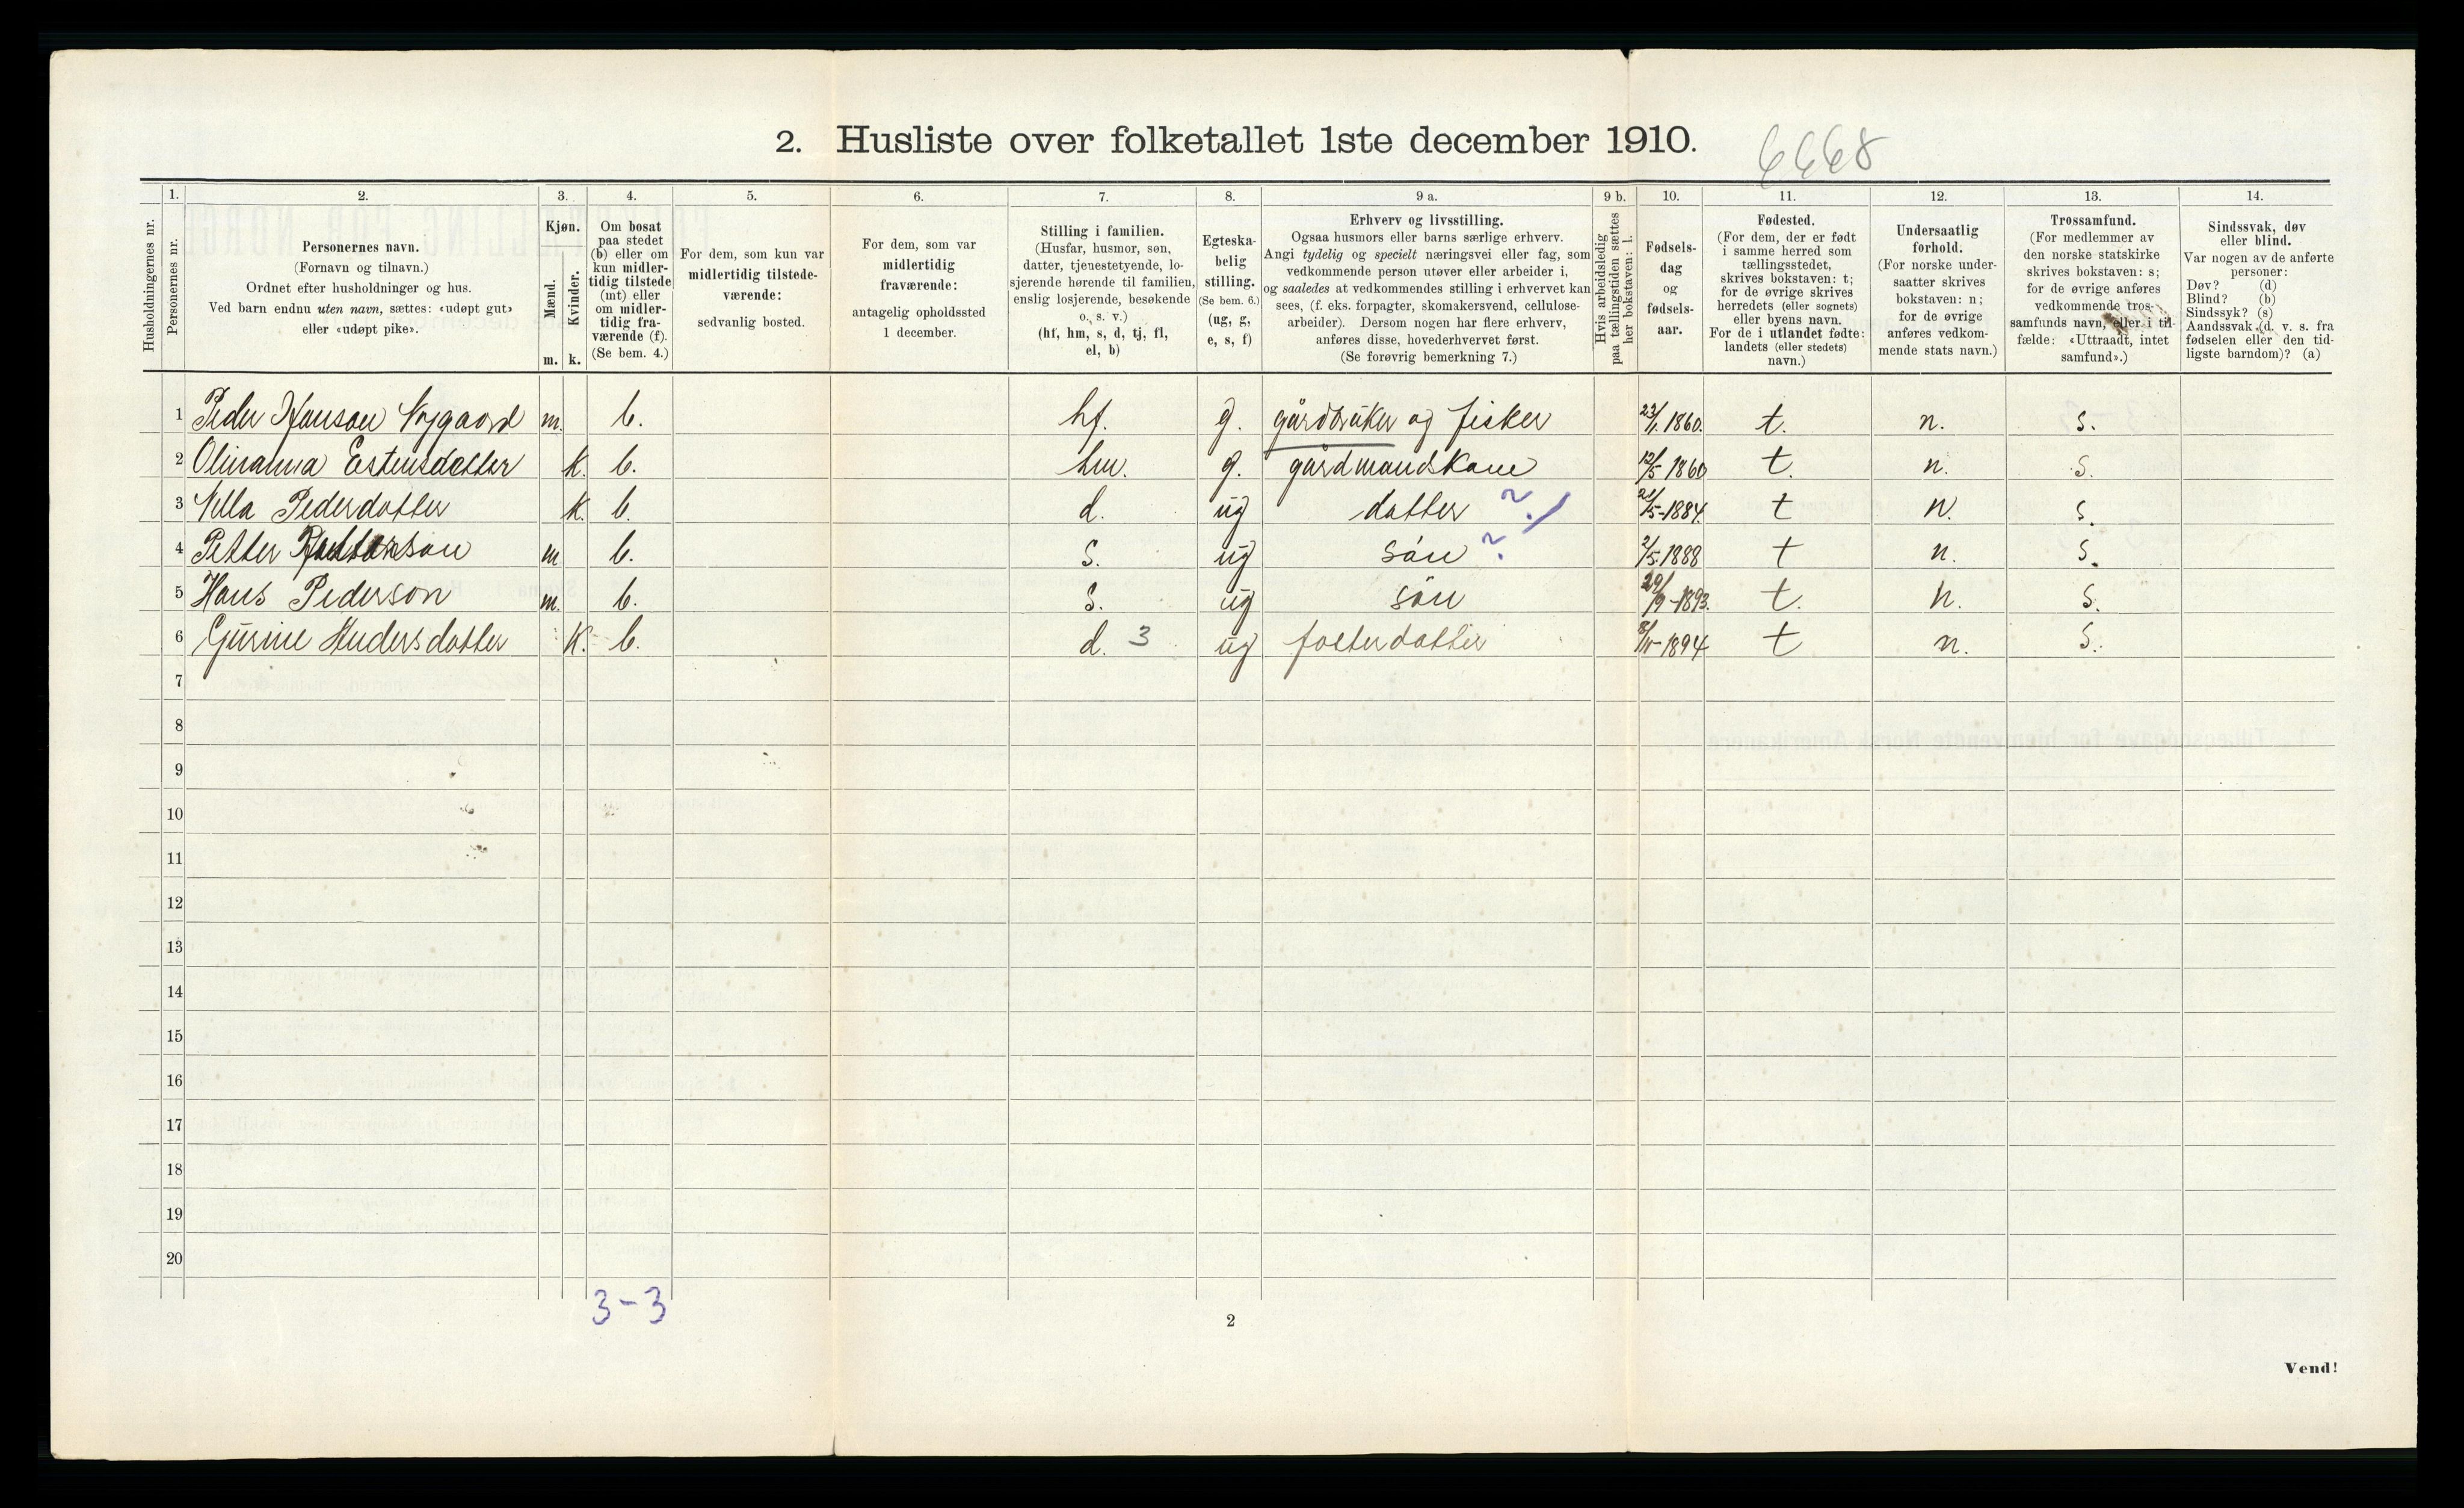 2. Husliste over folketallet 1ste december 1910.
6668
1. 2. 3. 4. 5. 6. 7. 8. 9 a. 9 b. 10. 11. 12. 13. 14.
Husholdningernes nr.
Personernes nr.
Personernes navn.
(Fornavn og tilnavn.)
Ordnet efter husholdninger og hus.
Ved barn endnu uten navn, sættes: «udøpt gut»
eller «udøpt pike».
Kjøn.
Mænd.
Kvinder.
m. k.
Om bosat
paa stedet
(b) eller om
kun midler-
tidig tilstede
(mt) eller
om midler-
tidig fra-
værende (f).
(Se bem. 4.)
For dem, som kun var
midlertidig tilstede-
værende:
sedvanlig bosted.
For dem, som var
midlertidig
fraværende:
antagelig opholdssted
1 december.
Stilling i familien.
(Husfar, husmor, søn,
datter, tjenestetyende, lo-
sjerende hørende til familien,
enslig losjerende, besøkende
o. s. v.)
(hf, hm, s, d, tj, fl,
el, b)
Egteska-
belig
stilling.
(Se bem. 6.)
(ug, g,
e, s, f)
Erhverv og livsstilling.
Ogsaa husmors eller barns særlige erhverv.
Angi tydelig og specielt næringsvei eller fag, som
vedkommende person utøver eller arbeider i,
og saaledes at vedkommendes stilling i erhvervet kan
sees, (f. eks. forpagter, skomakersvend, cellulose-
arbeider). Dersom nogen har flere erhverv,
anføres disse, hovederhvervet først.
(Se forøvrig bemerkning 7.)
Hvis arbeidsledig
paa tællingstiden sættes
her bokstaven: l.
Fødsels-
dag
og
fødsels-
aar.
Fødested.
(For dem, der er født
i samme herred som
tællingsstedet,
skrives bokstaven: t;
for de øvrige skrives
herredets (eller sognets)
eller byens navn.
For de i utlandet fødte:
landets (eller stedets)
navn.)
Undersaatlig
forhold.
(For norske under-
saatter skrives
bokstaven: n;
for de øvrige
anføres vedkom-
mende stats navn.)
Trossamfund.
(For medlemmer av
den norske statskirke
skrives bokstaven: s;
for de øvrige anføres
vedkommende tros-
samfunds navn, eller i til-
fælde: «Uttraadt, intet
samfund».)
Sindssvak, døv
eller blind.
Var nogen av de anførte
personer:
Døv? (d)
Blind? (b)
Sindssyk? (s)
Aandssvak (d. v. s. fra
fødselen eller den tid-
ligste barndom)? (a)
1 Peder Hanson Nygaard m. b. hf. g. gårdbruker og fisker 23/1 1860. t. n. s.
2 Olinanna Estensdatter k. b. hm. g. gårdmandskone 12/5 1860 t. n. s.
3 Nella Pedersdatter k. b. d. ug datter ? 21/5-1884. t n. s.
4 Petter Pettersøn m b. s. ug søn ? 2/5 1888 t n. s.
5 Hans Pederson m. b. s. ug søn 29/9-1893. t. n. s.
6 Gurine Andersdatter k. b. d. 3 ug fosterdatter 8/11-1894 t n. s.
7
8
9
10
11
12
13
14
15
16
17
18
19
20
3-3
2
Vend!